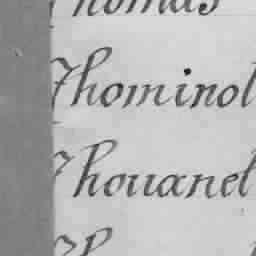 Thomas
Thominol
Thouanel